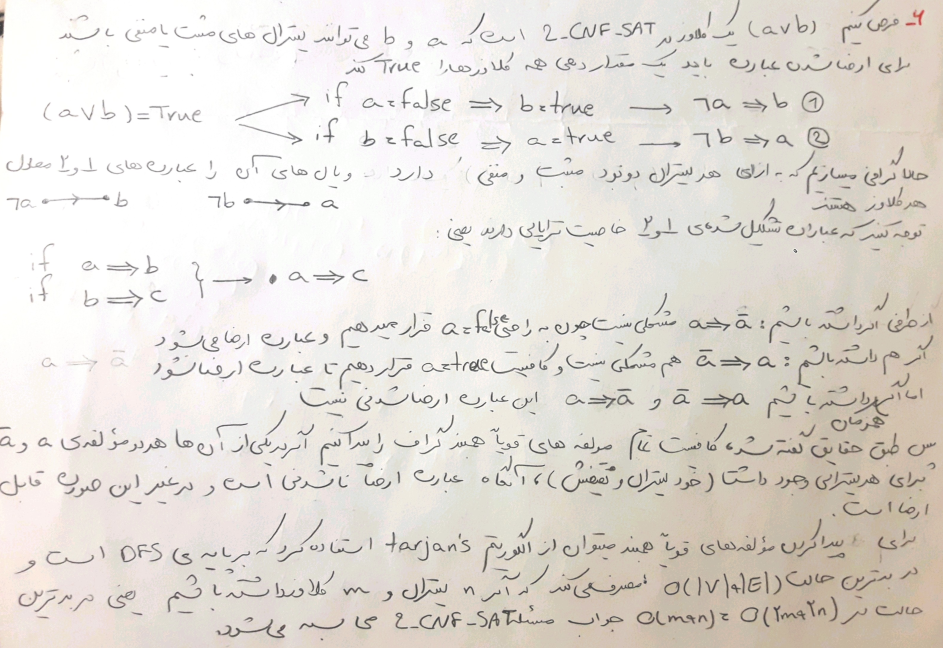 ۶- فرض کنیم (a∨b) یک کلاوز در 2-CNF-SAT است که a و b می‌توانند لیترال های مثبت یا منفی باشند
برای ارضا شدن عبارت باید یک مقداردهی همه کلاوزها را True کند
(a∨b)=True
if a=false ⇒ b=true → ¬a ⇒ b ①
if b=false ⇒ a=true → ¬b ⇒ a ②
حالا گرافی میسازیم که به ازای هر لیترال دو نود (مثبت و منفی) دارد و یال های آن را عبارت های ۱ و ۲ معادل
هر کلاوز هستند ¬a → b ¬b → a
توجه کنید که عبارات تشکیل شده‌ی ۱ و ۲ خاصیت تراپایی دارند یعنی:
if a ⇒ b
if b ⇒ c } → • a ⇒ c
از طرفی اگر داشته باشیم: a ⇒ ā مشکلی نیست چون به راحتی a=false قرار میدهیم و عبارت ارضا می‌شود
اگر هم داشته باشیم: ā ⇒ a هم مشکلی نیست و کافیست a=true قرار دهیم تا عبارت ارضا شود a ⇒ ā
اما اگر همزمان داشته باشیم ā ⇒ a و a ⇒ ā این عبارت ارضا شدنی نیست
پس طبق حقایق گفته شده، کافیست تمام مولفه های قویاً همبند گراف را پیدا کنیم اگر در یکی از آن ها هر دو مؤلفه‌ی a و ā
برای هر لیترالی وجود داشت (خود لیترال و نقیضش)، آنگاه عبارت ارضا ناشدنی است و در غیر این صورت قابل
ارضا است.
برای پیدا کردن مؤلفه‌های قویاً همبند میتوان از الگوریتم tarjan's استفاده کرد که بر پایه ی DFS است و
در بدترین حالت O(|V|+|E|) مصرف می‌کند که اگر n لیترال و m کلاوز داشته باشیم یعنی در بدترین
حالت در O(m+n) = O(۲m+۲n) جواب مسئله 2-CNF-SAT محاسبه می‌شود.